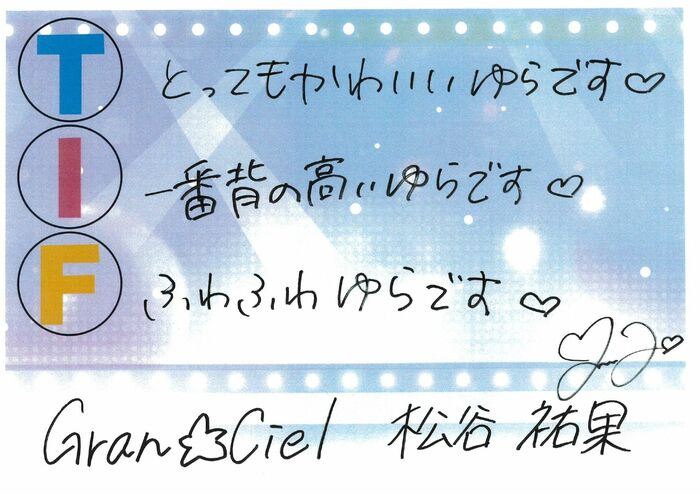 T とってもかわいいゆらです♡
I 一番背の高いゆらです♡
F ふわふわゆらです♡
Gran☆Ciel 松谷 祐果